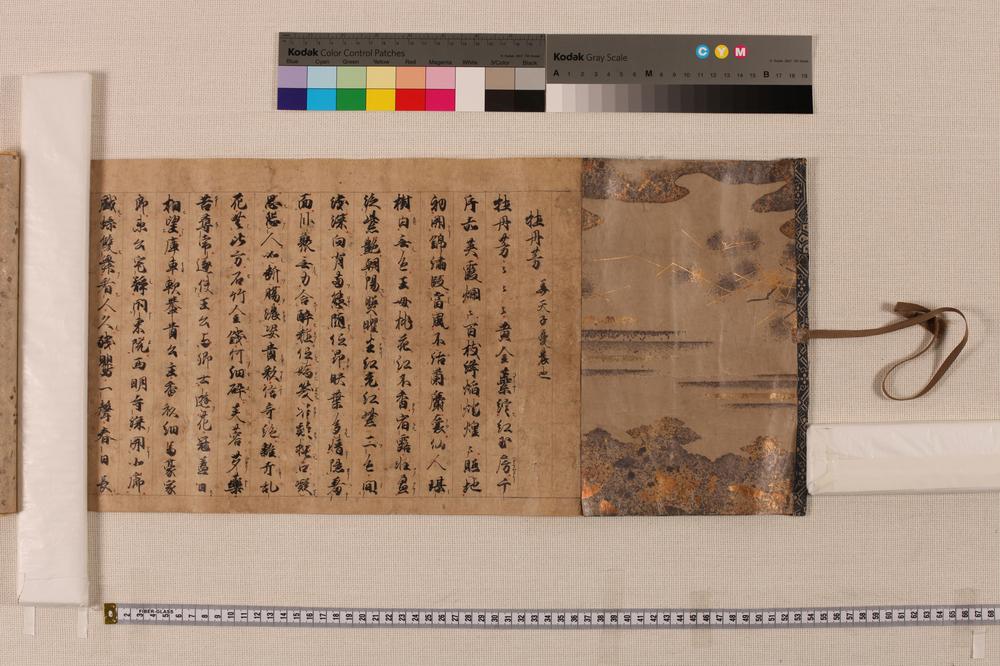 Kodak Color Control Patches
Blue Cyan Green Yellow Red Magenta White 3/Color Black
Kodak Gray Scale
C Y M
A 1 2 3 4 5 6 M 8 9 10 11 12 13 14 15 B 17 18 19
牡丹芳 美天子憂農也
牡丹芳〻〻〻黄金蘂綻紅玉房千
片赤英霞爛〻百枝絳焰燈煌〻照地
初開錦繡段當風不結蘭麝囊仙人琪
樹白無色王母桃花紅不香宿露軽盈
泛紫艶朝陽照曜生紅光紅紫二色間
浅深向背萬態随低昂映葉多情隠羞
面臥叢無力含醉粧低嬌咲容疑掩口凝
思怨人如断腸濃姿貴彩信奇絶雜卉乱
花無比方石竹金錢何細碎芙蓉芍藥
苦尋常遂使王公与卿士遊花冠蓋日
相望庳車軟轝貴公主香衫細馬豪家
郎衛公宅静閇東院西明寺深開北廊
戯蝶雙舞看人久殘鸎一聲春日長
FIBER-GLASS